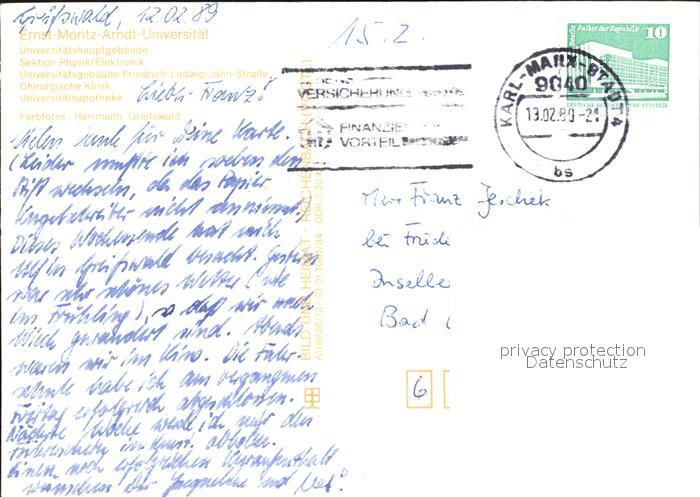 Greifswald, 12.02.89
Ernst-Moritz-Arndt-Universität
Universitätshauptgebäude
Sektion Physik/Elektronik
Universitätsgebäude Friedrich-Ludwig-Jahn-Straße
Chirurgische Klinik
Universitätsapotheke
Farbfotos: Herrmann, Greifswald
Lieber Franz!
Vielen Dank für Deine Karte.
(Leider mußte ich soeben den
Stift wechseln, da das Papier
Kugelschreiber nicht annimmt)
Dieses Wochenende hat mich
Ulf in Greifswald besucht. Gestern
war sehr schönes Wetter (wie
im Frühling), so daß wir nach
Wieck gewandert sind. Abends
waren wir im Kino. Die Fahr-
schule habe ich am vergangenen
Freitag erfolgreich abgeschlossen.
Nächste Woche werde ich mir den
Führerschein abholen.
Einen noch erfolgreichen Kuraufenthalt
wünschen Dir Jacqueline und Ulf.
15.2.
VERSICHERUNG
FINANZIE
VORTEIL
KARL-MARX-STADT 4
9040
13.02.89-21
bs
Berlin Palast der Republik
10
DEUTSCHE DEMOKRATISCHE REPUBLIK
BILD UND HEIMAT · REICHENBACH (VOGTL)
Herr Franz Jeschek
bei
Inselle
Bad
6
privacy protection
Datenschutz